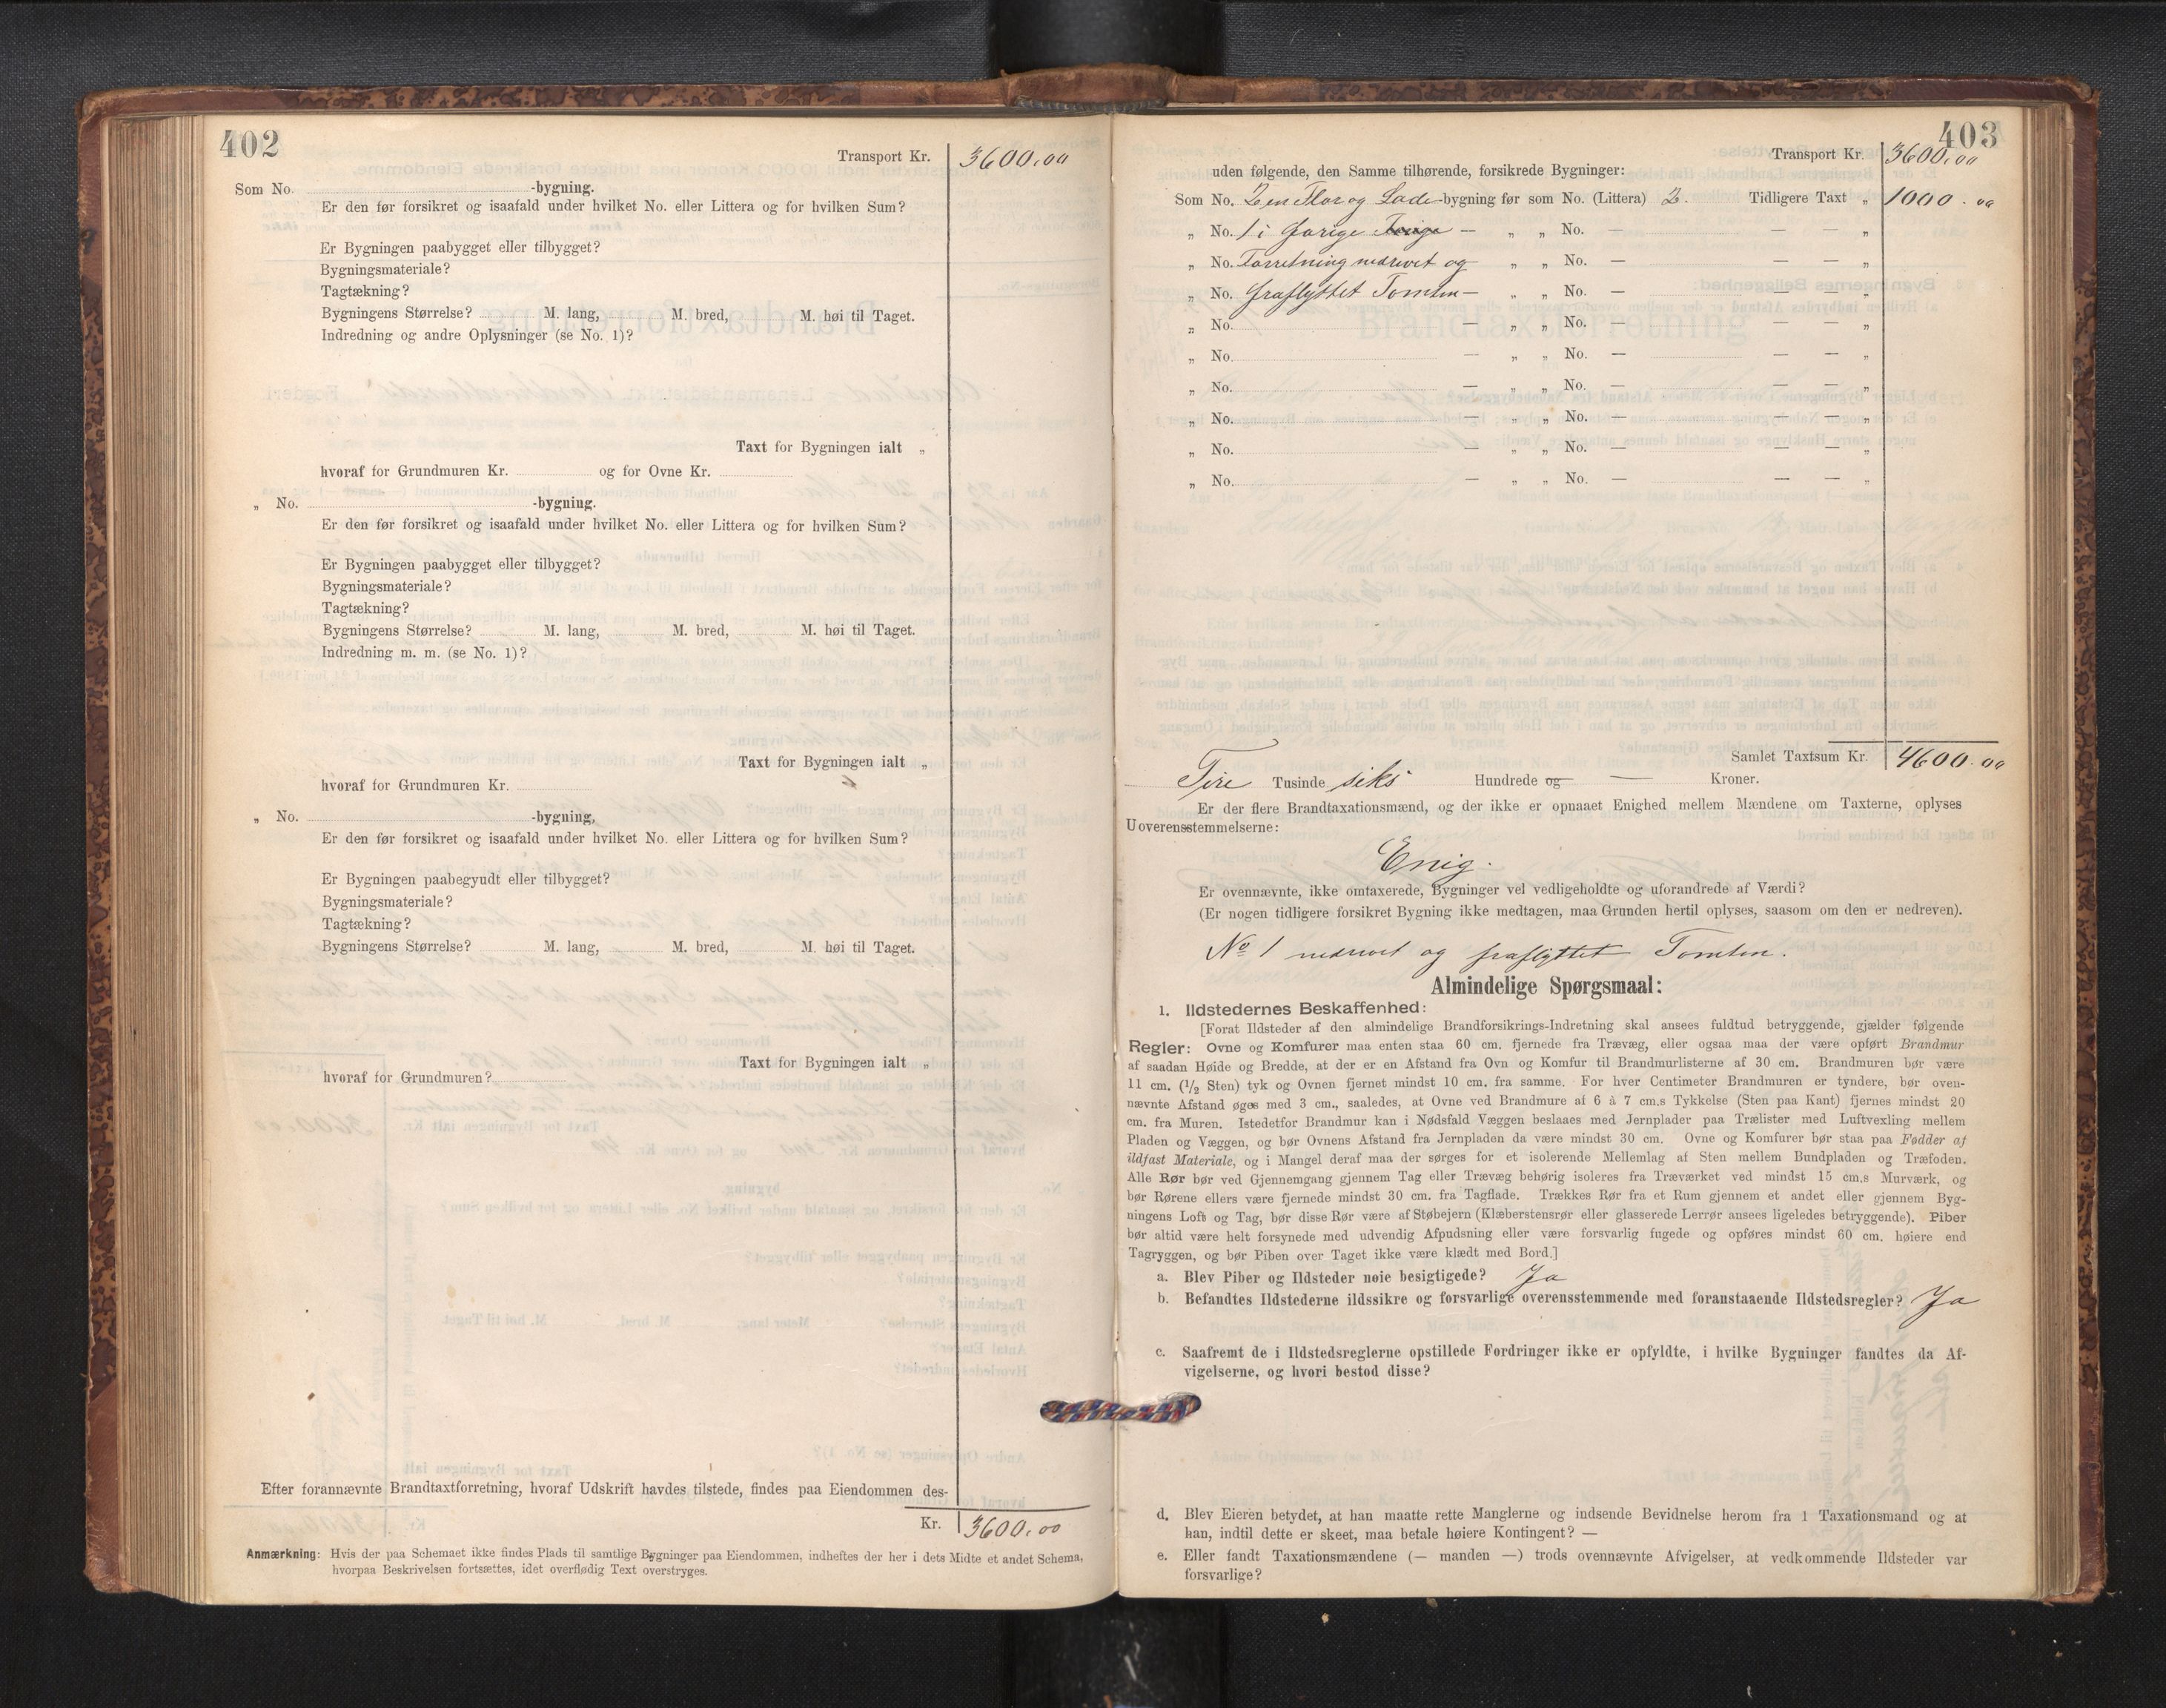 402
Transport Kr. 3600,00
Som No. -bygning.
Er den før forsikret og isaafald under hvilket No. eller Littera og for hvilken Sum?
Er Bygningen paabygget eller tilbygget?
Bygningsmateriale?
Tagtækning?
Bygningens Størrelse? M. lang, M. bred, M. høi til Taget.
Indredning og andre Oplysninger (se No. 1)?
Taxt for Bygningen ialt „
hvoraf for Grundmuren Kr. og for Ovne Kr.
„ No. -bygning.
Er den før forsikret og isaafald under hvilket No. eller Littera og for hvilken Sum?
Er Bygningen paabygget eller tilbygget?
Bygningsmateriale?
Tagtækning?
Bygningens Størrelse? M. lang, M. bred, M. høi til Taget.
Indredning m. m. (se No. 1)?
Taxt for Bygningen ialt „
hvoraf for Grundmuren Kr.
„ No. -bygning,
Er den før forsikret og isaafald under hvilket No. eller Littera og for hvilken Sum?
Er Bygningen paabegyudt eller tilbygget?
Bygningsmateriale?
Tagtækning?
Bygningens Størrelse? M. lang, M. bred, M. høi til Taget.
Taxt for Bygningen ialt „
hvoraf for Grundmuren?
Efter forannævnte Brandtaxtforretning, hvoraf Udskrift havdes tilstede, findes paa Eiendommen des-
Kr. 3600,00
Anmærkning: Hvis der paa Schemaet ikke findes Plads til samtlige Bygninger paa Eiendommen, indheftes der her i dets Midte et andet Schema,
hvorpaa Beskrivelsen fortsættes, idet overflødig Text overstryges.
403
Transport Kr. 3600,00
uden følgende, den Samme tilhørende, forsikrede Bygninger:
Som No. 2 en Flor og Lade-bygning før som No. (Littera) 2. Tidligere Taxt „ 1000.00
„ No. 1 i forige — „ „ No. — — — „
„ No. Forretning nedrevet og „ „ No. — — — „
„ No. fraflyttet Tomten — „ „ No. — — — „
„ No. — „ „ No. — — — „
„ No. — „ „ No. — — — „
„ No. — „ „ No. — — — „
„ No. — „ „ No. — — — „
„ No. — „ „ No. — — — „
„ No. — „ „ No. — — — „
Samlet Taxtsum Kr. 4600.00
Fire Tusinde seks Hundrede og — Kroner.
Er der flere Brandtaxationsmænd, og der ikke er opnaaet Enighed mellem Mændene om Taxterne, oplyses
Uoverensstemmelserne:
Enig.
Er ovennævnte, ikke omtaxerede, Bygninger vel vedligeholdte og uforandrede af Værdi?
(Er nogen tidligere forsikret Bygning ikke medtagen, maa Grunden hertil oplyses, saasom om den er nedreven).
No 1 nedrevet og fraflyttet Tomten.
Almindelige Spørgsmaal:
1. Ildstedernes Beskaffenhed:
[Forat Ildsteder af den almindelige Brandforsikrings-Indretning skal ansees fuldtud betryggende, gjælder følgende
Regler: Ovne og Komfurer maa enten staa 60 cm. fjernede fra Trævæg, eller ogsaa maa der være opført Brandmur
af saadan Høide og Bredde, at der er en Afstand fra Ovn og Komfur til Brandmurlisterne af 30 cm. Brandmuren bør være
11 cm. (1/2 Sten) tyk og Ovnen fjernet mindst 10 cm. fra samme. For hver Centimeter Brandmuren er tyndere, bør oven-
nævnte Afstand øges med 3 cm., saaledes, at Ovne ved Brandmure af 6 à 7 cm.s Tykkelse (Sten paa Kant) fjernes mindst 20
cm. fra Muren. Istedetfor Brandmur kan i Nødsfald Væggen beslaaes med Jernplader paa Trælister med Luftvexling mellem
Pladen og Væggen, og bør Ovnens Afstand fra Jernpladen da være mindst 30 cm. Ovne og Komfurer bør staa paa Fødder af
ildfast Materiale, og i Mangel deraf maa der sørges for et isolerende Mellemlag af Sten mellem Bundpladen og Træfoden.
Alle Rør bør ved Gjennemgang gjennem Tag eller Trævæg behørig isoleres fra Træværket ved mindst 15 cm.s Murværk, og
bør Rørene ellers være fjernede mindst 30 cm. fra Tagflade. Trækkes Rør fra et Rum gjennem et andet eller gjennem Byg-
ningens Loft og Tag, bør disse Rør være af Støbejern (Klæberstensrør eller glasserede Lerrør ansees ligeledes betryggende). Piber
bør altid være helt forsynede med udvendig Afpudsning eller være forsvarlig fugede og opføres mindst 60 cm. høiere end
Tagryggen, og bør Piben over Taget ikke være klædt med Bord.]
a. Blev Piber og Ildsteder nøie besigtigede? Ja
b. Befandtes Ildstederne ildssikre og forsvarlige overensstemmende med foranstaaende Ildstedsregler? Ja
c. Saafremt de i Ildstedsreglerne opstillede Fordringer ikke er opfyldte, i hvilke Bygninger fandtes da Af-
vigelserne, og hvori bestod disse?
d. Blev Eieren betydet, at han maatte rette Manglerne og indsende Bevidnelse herom fra 1 Taxationsmand og at
han, indtil dette er skeet, maa betale høiere Kontingent? —
e. Eller fandt Taxationsmændene (— manden —) trods ovennævnte Afvigelser, at vedkommende Ildsteder var
forsvarlige?